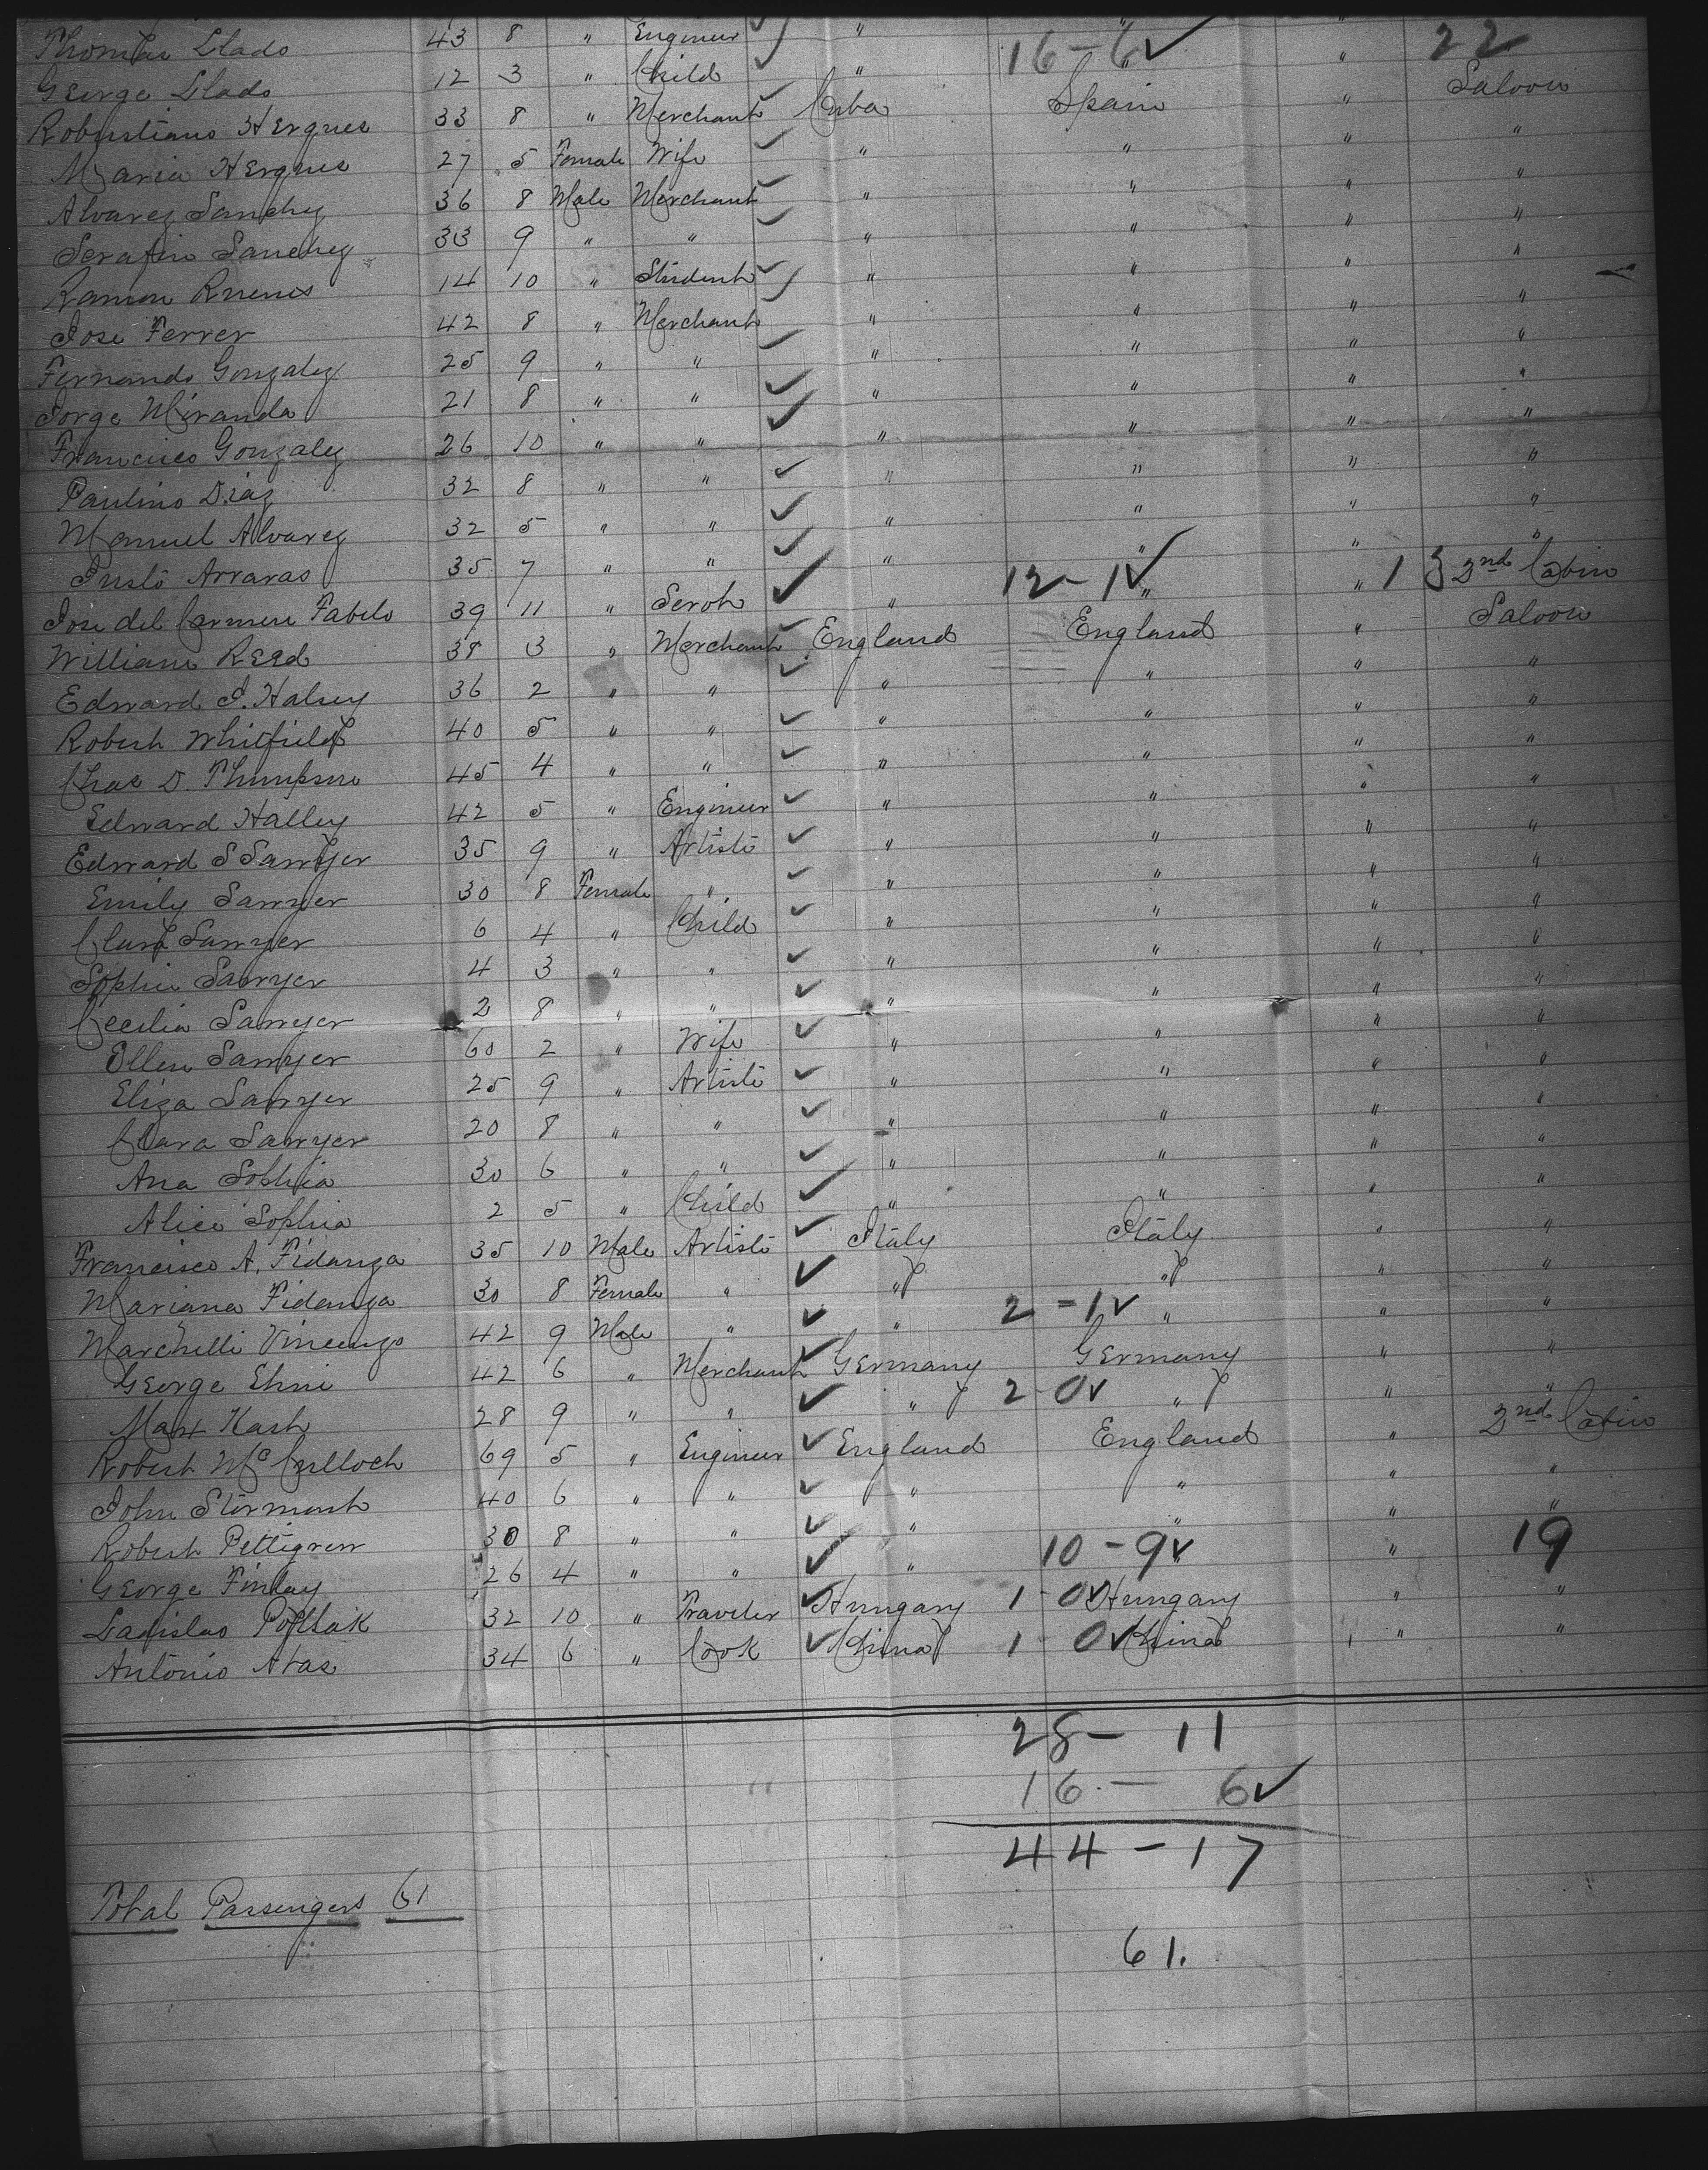 Thomas Llado 43 8 " Engineer " " "
16 - 6 22
George Llado 12 3 " Child " " "
Robustiano Hergues 33 8 " Merchant Cuba Spain " Saloon
Maria Hergues 27 5 Female Wife " " " "
Alvarez Sanchez 36 8 Male Merchant " " " "
Serafin Sanchez 33 9 " " " " " "
Ramon 14 10 " Student " " " "
Jose Ferrer 42 8 " Merchant " " " "
Fernando Gonzalez 25 9 " " " " " "
Jorge Miranda 21 8 " " " " " "
Francisco Gonzalez 26 10 " " " " " "
Paulino Diaz 32 8 " " " " " "
Manuel Alvarez 32 5 " " " " " "
Justo Arraras 35 7 " " " " " "
12 - 1 13
Jose del Carmen Fabelo 39 11 " " " " 2nd Cabin
William Reed 38 3 " Merchant England England " Saloon
Edward J. Halsey 36 2 " " " " " "
Robert Whitfield 40 5 " " " " " "
Chas D. Thompson 45 4 " " " " " "
Edward Halley 42 5 " Engineer " " " "
Edward S Sawyer 35 9 " Artist " " " "
Emily Sawyer 30 8 Female " " " " "
Clara Sawyer 6 4 " Child " " " "
Sophia Sawyer 4 3 " " " " " "
Cecilia Sawyer 2 8 " " " " " "
Ellen Sawyer 60 2 " Wife " " " "
Eliza Sawyer 25 9 " Artist " " " "
Clara Sawyer 20 8 " " " " " "
Ana Sophia 30 6 " " " " " "
Alice Sophia 2 5 " Child " " " "
Francisco A. Fidanza 35 10 Male Artist Italy Italy " "
Mariana Fidanza 30 8 Female " " " " "
Marchelli Vincenzo 42 9 Male " " 2 - 1 " " "
George Ehni 42 6 " Merchant Germany Germany " "
Max Kash 28 9 " " " 2 - 0 " " "
Robert McCulloch 69 5 " Engineer England England " 2nd Cabin
John Stormonth 40 6 " " " " " "
Robert Pettigrew 30 8 " " " " " "
George Finlay 26 4 " " " 10 - 9 " 19
Ladislao Pollak 32 10 " Traveler Hungary 1 - 0 Hungary " "
Antonio Atas 34 6 " Cook China 1 - 0 China " "
28 - 11
16 - 6
44 - 17
Total Passengers 61
61.